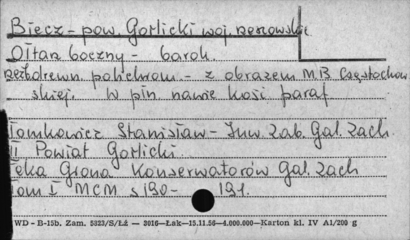 Biecz - pow. Gorlicki woj. rzeszowskie
Ołtarz boczny - barok.
rzeźb. drewn. polichrom. - z obrazem M.B. Częstochow
skiej. W płn nawie kość. paraf
Tomkowicz Stanisław - Inw. Zab. Gal. Zach.
II Powiat Gorlicki.
Teka Grona Konserwatorów Gal. Zach
Tom I MCM s 190- 191.
WD - B-15b. Zam. 5822/S/Łź — 3016—Łak—15.11.56—4.000.000—Karton kl. IV A1/200 g